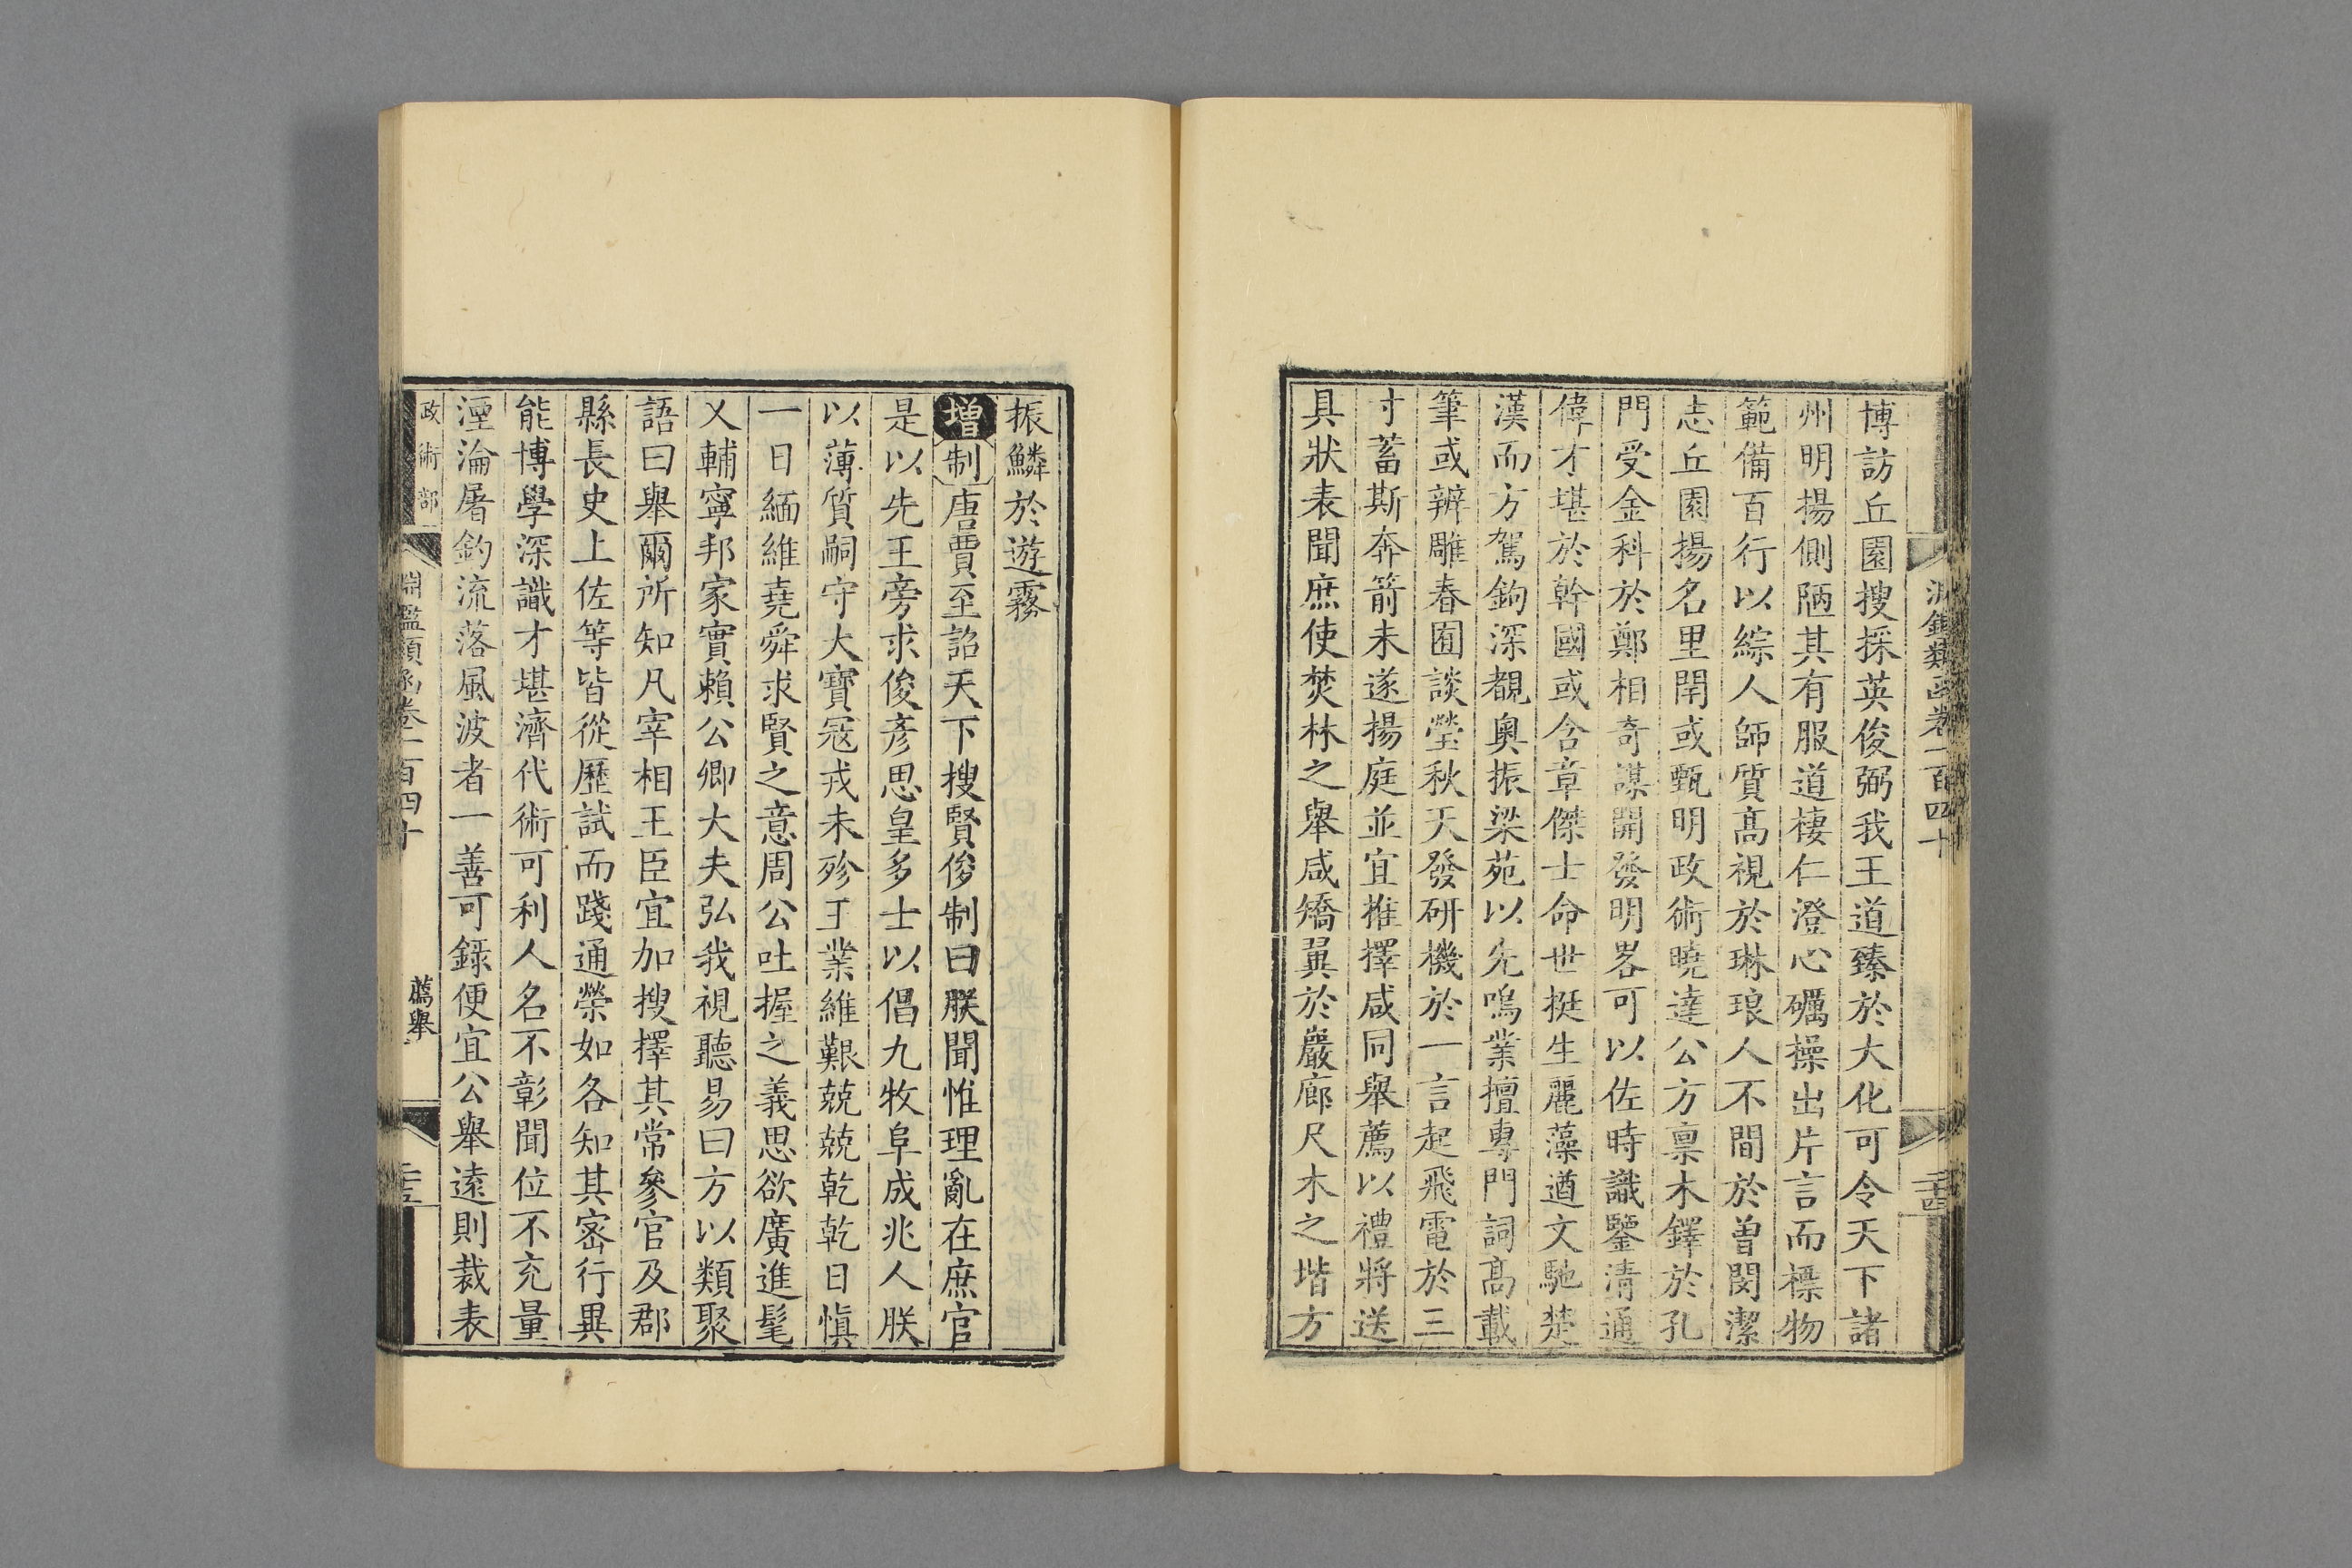 淵鑑類函卷一百四十
二十四
博訪丘園搜採英俊弼我王道臻於大化可令天下諸
州明揚側陋其有服道棲仁澄心礪操出片言而標物
範備百行以綜人師質高視於琳琅人不間於曽閔潔
志丘園揚名里閈或甄明政術曉達公方禀木鐸於孔
門受金科於鄭相奇謀開發明畧可以佐時識鑒清通
偉才堪於幹國或含章傑士命世挺生麗藻遒文馳楚
漢而方駕鉤深覩奧振梁苑以先鳴業擅專門詞高載
筆或辨雕春囿談瑩秋天發研機於一言起飛電於三
寸蓄斯奔箭未遂揚庭並宜推擇咸同舉薦以禮將送
具狀表聞庶使焚林之舉咸矯翼於巖廊尺木之堦方
振鱗於遊霧
增制唐賈至詔天下搜賢俊制曰朕聞惟理亂在庶官
是以先王旁求俊彥思皇多士以倡九牧阜成兆人朕
以薄質嗣守大寶寇戎未殄王業維艱兢兢乾乾日慎
一日緬維堯舜求賢之意周公吐握之義思欲廣進髦
乂輔寧邦家實賴公卿大夫弘我視聽易曰方以類聚
語曰舉爾所知凡宰相王臣宜加搜擇其常參官及郡
縣長史上佐等皆從歷試而踐通榮如各知其密行異
能博學深識才堪濟代術可利人名不彰聞位不充量
湮淪屠釣流落風波者一善可錄便宜公舉遠則裁表
政術部
淵鑑類函卷一百四十
薦舉
二十五